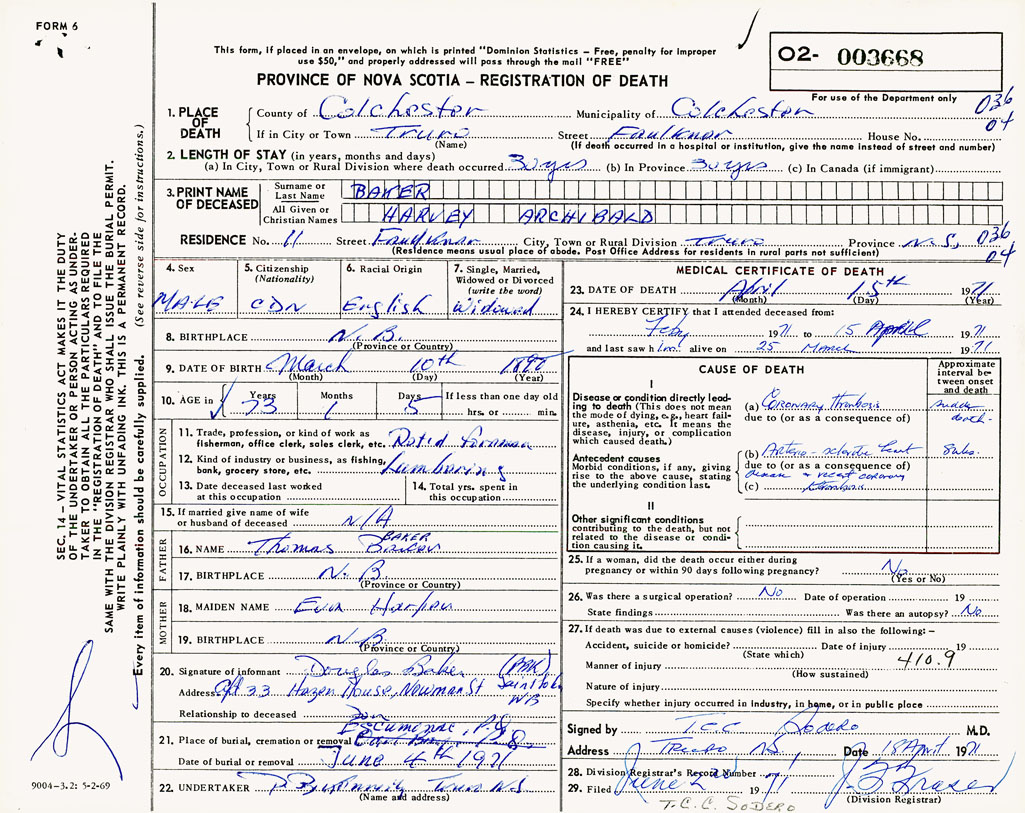 FORM 6
This form, if placed in an envelope, on which is printed "Dominion Statistics – Free, penalty for improper
use $50," and properly addressed will pass through the mail "FREE"
O2- 003668
For use of the Department only
PROVINCE OF NOVA SCOTIA – REGISTRATION OF DEATH
036
04
1. PLACE OF DEATH
County of Colchester Municipality of Colchester
If in City or Town Truro Street Faulkner House No.
(Name) (If death occurred in a hospital or institution, give the name instead of street and number)
2. LENGTH OF STAY (in years, months and days)
(a) In City, Town or Rural Division where death occurred 30 yrs (b) In Province 30 yrs (c) In Canada (if immigrant)
3. PRINT NAME OF DECEASED
Surname or Last Name BAKER
All Given or Christian Names HARVEY ARCHIBALD
RESIDENCE No. 11 Street Faulkner City, Town or Rural Division Truro Province N.S. 036
(Residence means usual place of abode. Post Office Address for residents in rural parts not sufficient) 04
4. Sex MALE
5. Citizenship (Nationality) CDN
6. Racial Origin English
7. Single, Married, Widowed or Divorced (write the word) Widowed
8. BIRTHPLACE N.B.
(Province or Country)
9. DATE OF BIRTH March 10th
(Month) (Day) (Year)
10. AGE in Years 73 Months 1 Days 5 If less than one day old
hrs. or min.
OCCUPATION
11. Trade, profession, or kind of work as
fisherman, office clerk, sales clerk, etc.
12. Kind of industry or business, as fishing,
bank, grocery store, etc. Lumbering
13. Date deceased last worked
at this occupation
14. Total yrs. spent in
this occupation
15. If married give name of wife
or husband of deceased N/A
FATHER
BAKER
16. NAME Thomas
17. BIRTHPLACE N.B.
(Province or Country)
MOTHER
18. MAIDEN NAME Harper
19. BIRTHPLACE N B
(Province or Country)
20. Signature of informant Douglas Baker
Address Apt 33 Hazen House, Newman St Saint John
NB
Relationship to deceased Son
Escumenac, P.Q
21. Place of burial, cremation or removal P.Q
Date of burial or removal June 4th 1971
22. UNDERTAKER Truro N.S
(Name and address)
MEDICAL CERTIFICATE OF DEATH
23. DATE OF DEATH April 15th 1971
(Month) (Day) (Year)
24. I HEREBY CERTIFY that I attended deceased from:
Feby 1971 to 15 April 1971
and last saw him alive on 25 March 1971
CAUSE OF DEATH
Approximate interval between onset and death
I
Disease or condition directly leading
to death (This does not mean
the mode of dying, e.g., heart failure,
asthenia, etc. It means the
disease, injury, or complication
which caused death.)
(a) Coronary thrombosis sudden
due to (or as a consequence of) death.
Antecedent causes
Morbid conditions, if any, giving
rise to the above cause, stating
the underlying condition last.
(b) Arterio-sclerotic heart
due to (or as a consequence of)
disease & recent coronary
(c) thrombosis
II
Other significant conditions
contributing to the death, but not
related to the disease or condition
causing it.
25. If a woman, did the death occur either during
pregnancy or within 90 days following pregnancy? No
(Yes or No)
26. Was there a surgical operation? No Date of operation 19
State findings Was there an autopsy? No
27. If death was due to external causes (violence) fill in also the following:–
Accident, suicide or homicide? Date of injury 19
(State which) 410.9
Manner of injury
(How sustained)
Nature of injury
Specify whether injury occurred in industry, in home, or in public place
Signed by T.C.C. Sodero M.D.
Address TRURO NS Date 18 April 1971
28. Division Registrar's Record Number
29. Filed June 2 1971 J. Fraser
(Division Registrar)
T.C.C. SODERO
SEC. 14 – VITAL STATISTICS ACT MAKES IT THE DUTY
OF THE UNDERTAKER OR PERSON ACTING AS UNDER-
TAKER TO OBTAIN ALL THE PARTICULARS REQUIRED
IN THE "REGISTRATION OF DEATH" AND TO FILE THE
SAME WITH THE DIVISION REGISTRAR WHO SHALL ISSUE THE BURIAL PERMIT.
WRITE PLAINLY WITH UNFADING INK. THIS IS A PERMANENT RECORD.
Every item of information should be carefully supplied. (See reverse side for instructions.)
9004-3.2: 5-2-69